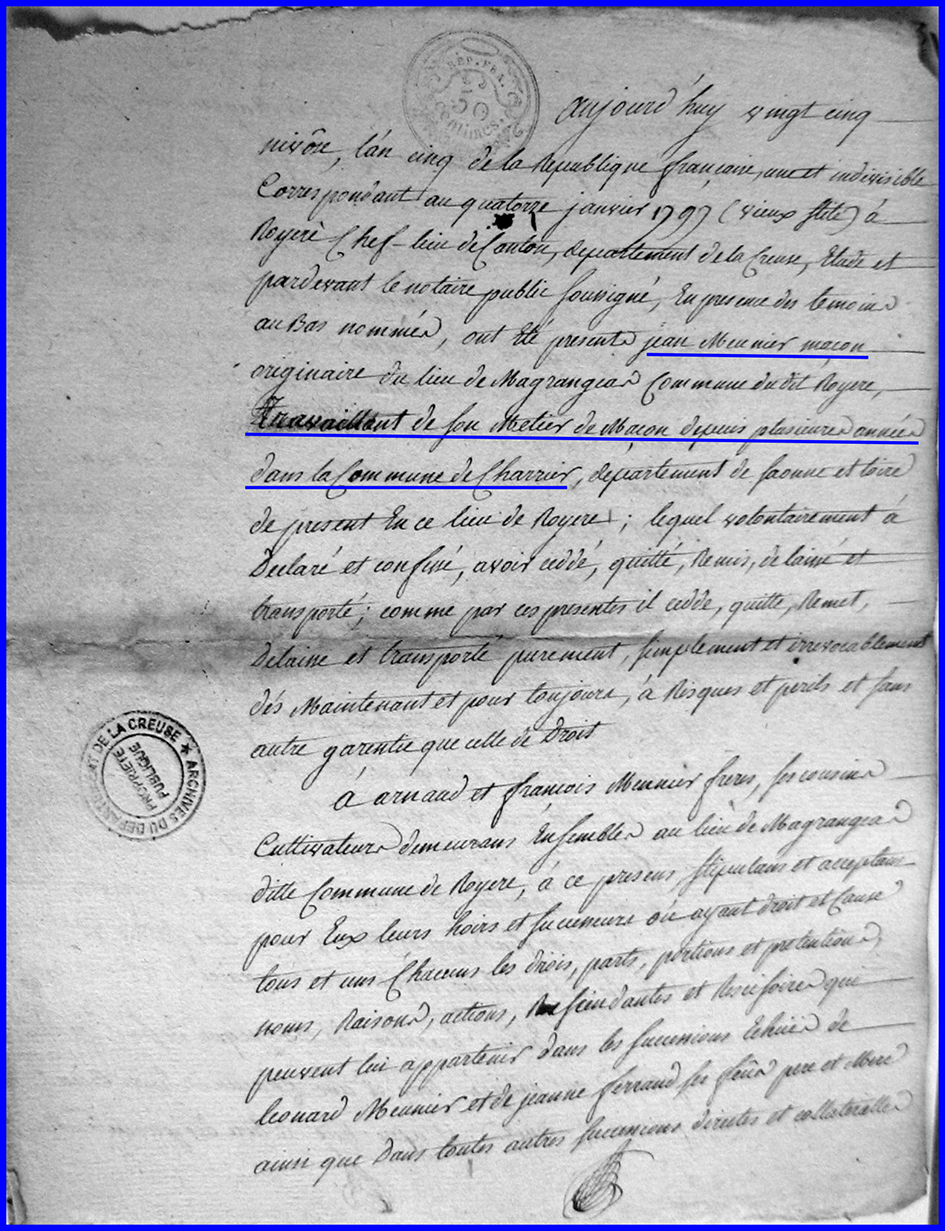 REP. FRA.
50
centimes
aujourd'huy vingt cinq
nivôse, l'an cinq de la Republique françaice, une et indivisible
Correspondant au quatorze janvier 1797 (vieux stile) à
Royere Chef-lieu de Canton, departement de la Creuse, Etude et
pardevant le notaire public soussigné, En presence des temoins
au Bas nommés, ont été presents jean Meunier maçon
originaire du lieu de Magrangeas Commune du dit Royere,
Travaillant de son Metier de Maçon depuis plusieures années
dans la Commune de Charrier, département de saonne et loire
de present En ce lieu de Royere ; lequel volontairement à
Declaré et confessé, avoir ceddé, quitté, Remis, delaissé et
transporté ; comme par ces presentes il cedde, quitte, Remet,
Delaisse et transporte purement, simplement et irrevocablement
dés Maintenant et pour toujours, à Risques et perils et sans
autre garentie que celle de Droit
à arnaud et françois Meunier freres, ses cousins
Cultivateurs demeurans Ensembles au lieu de Magrangeas
ditte Commune de Royere, à ce presens, stipulans et acceptans
pour Eux leurs hoirs et successeurs ou ayant droit et Cause
tous et uns Chacuns les drois, parts, portions et pretentions,
noms, Raisons, actions, Resscindantes et Rescisoires que
peuvent lui appartenir dans les successions Echues de
leonard Meunier et de jeanne ferrand ses feus pere et Mere
ainsi que Dans toutes autres successions directes et collateralles
ARCHIVES DU DEPARTEMENT DE LA CREUSE
PROPRIÉTÉ
PUBLIQUE